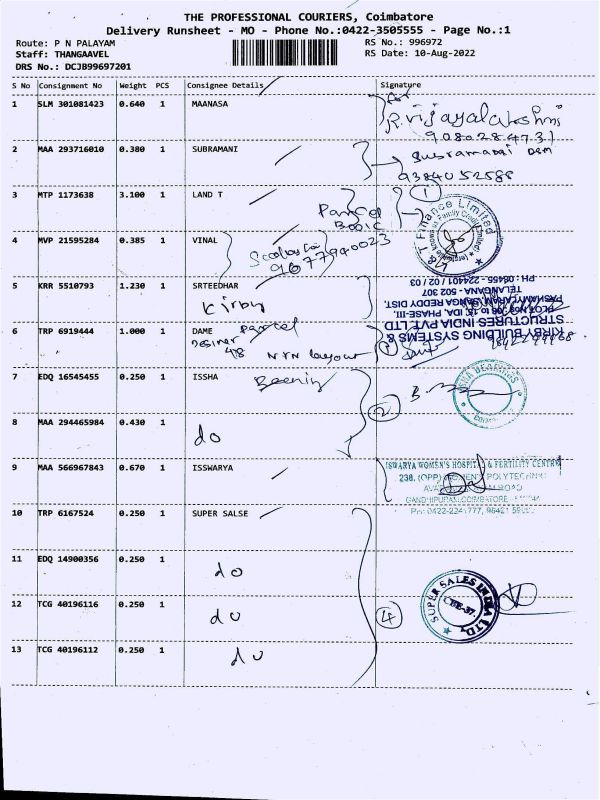 THE PROFESSIONAL COURIERS, Coimbatore
Delivery Runsheet - MO - Phone No.:0422-3505555 - Page No.:1
Route: P N PALAYAM
RS No.: 996972
Staff: THANGAAVEL
RS Date: 10-Aug-2022
DRS No.: DCJB99697201
S No Consignment No Weight PCS Consignee Details Signature
1 SLM 301081423 0.640 1 MAANASA
for
R.Vijayalakshmi
9080284731
2 MAA 293716010 0.380 1 SUBRAMANI
Subramani
9384052588
3 MTP 1173638 3.100 1 LAND T
Parcel
1
& T Finance Limited
4 MVP 21595284 0.385 1 VINAL
9677940023
5 KRR 5510793 1.230 1 SRTEEDHAR
Kirby
KIRBY BUILDING SYSTEMS &
STRUCTURES INDIA PVT LTD
IDA, PHASE-III
REDDY DIST.
TELANGANA - 502 307
PH-08455 - 224401 / 02 / 03
6 TRP 6919444 1.000 1 DAME Parcel
N T N layout
7 EDQ 16545455 0.250 1 ISSHA
2
BEARINGS
8 MAA 294465984 0.430 1
do
9 MAA 566967843 0.670 1 ISSWARYA
ISWARYA WOMEN'S HOSPITAL & FERTILITY CENTRE
238, (OPP) WOMEN'S POLYTECHNIC
GANDHIPURAM, COIMBATORE
10 TRP 6167524 0.250 1 SUPER SALSE
11 EDQ 14900356 0.250 1
do
12 TCG 40196116 0.250 1
do
4
SUPER SALES INDIA LTD
CBE-37
13 TCG 40196112 0.250 1
do